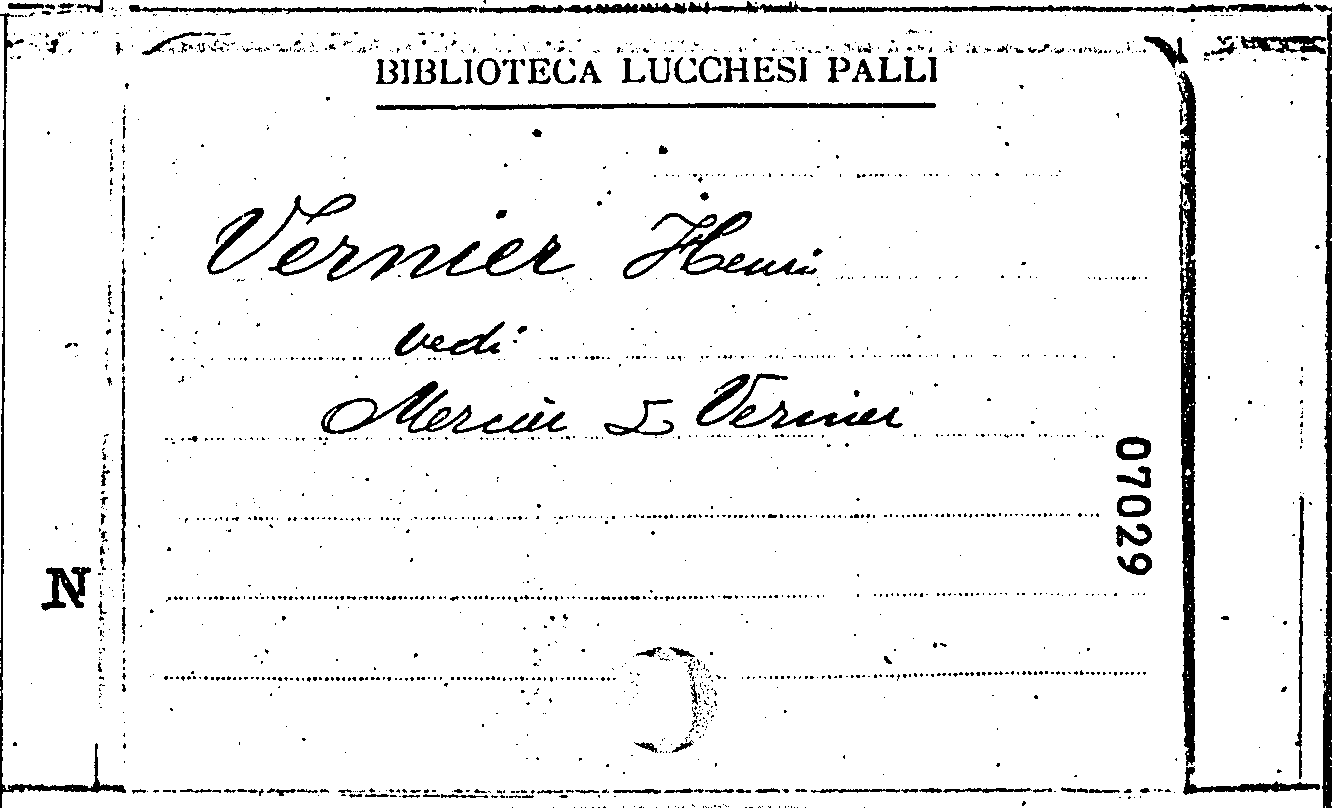 BIBLIOTECA LUCCHESI PALLI
Vernier Henri
vedi
Mercier & Vernier
07029
N